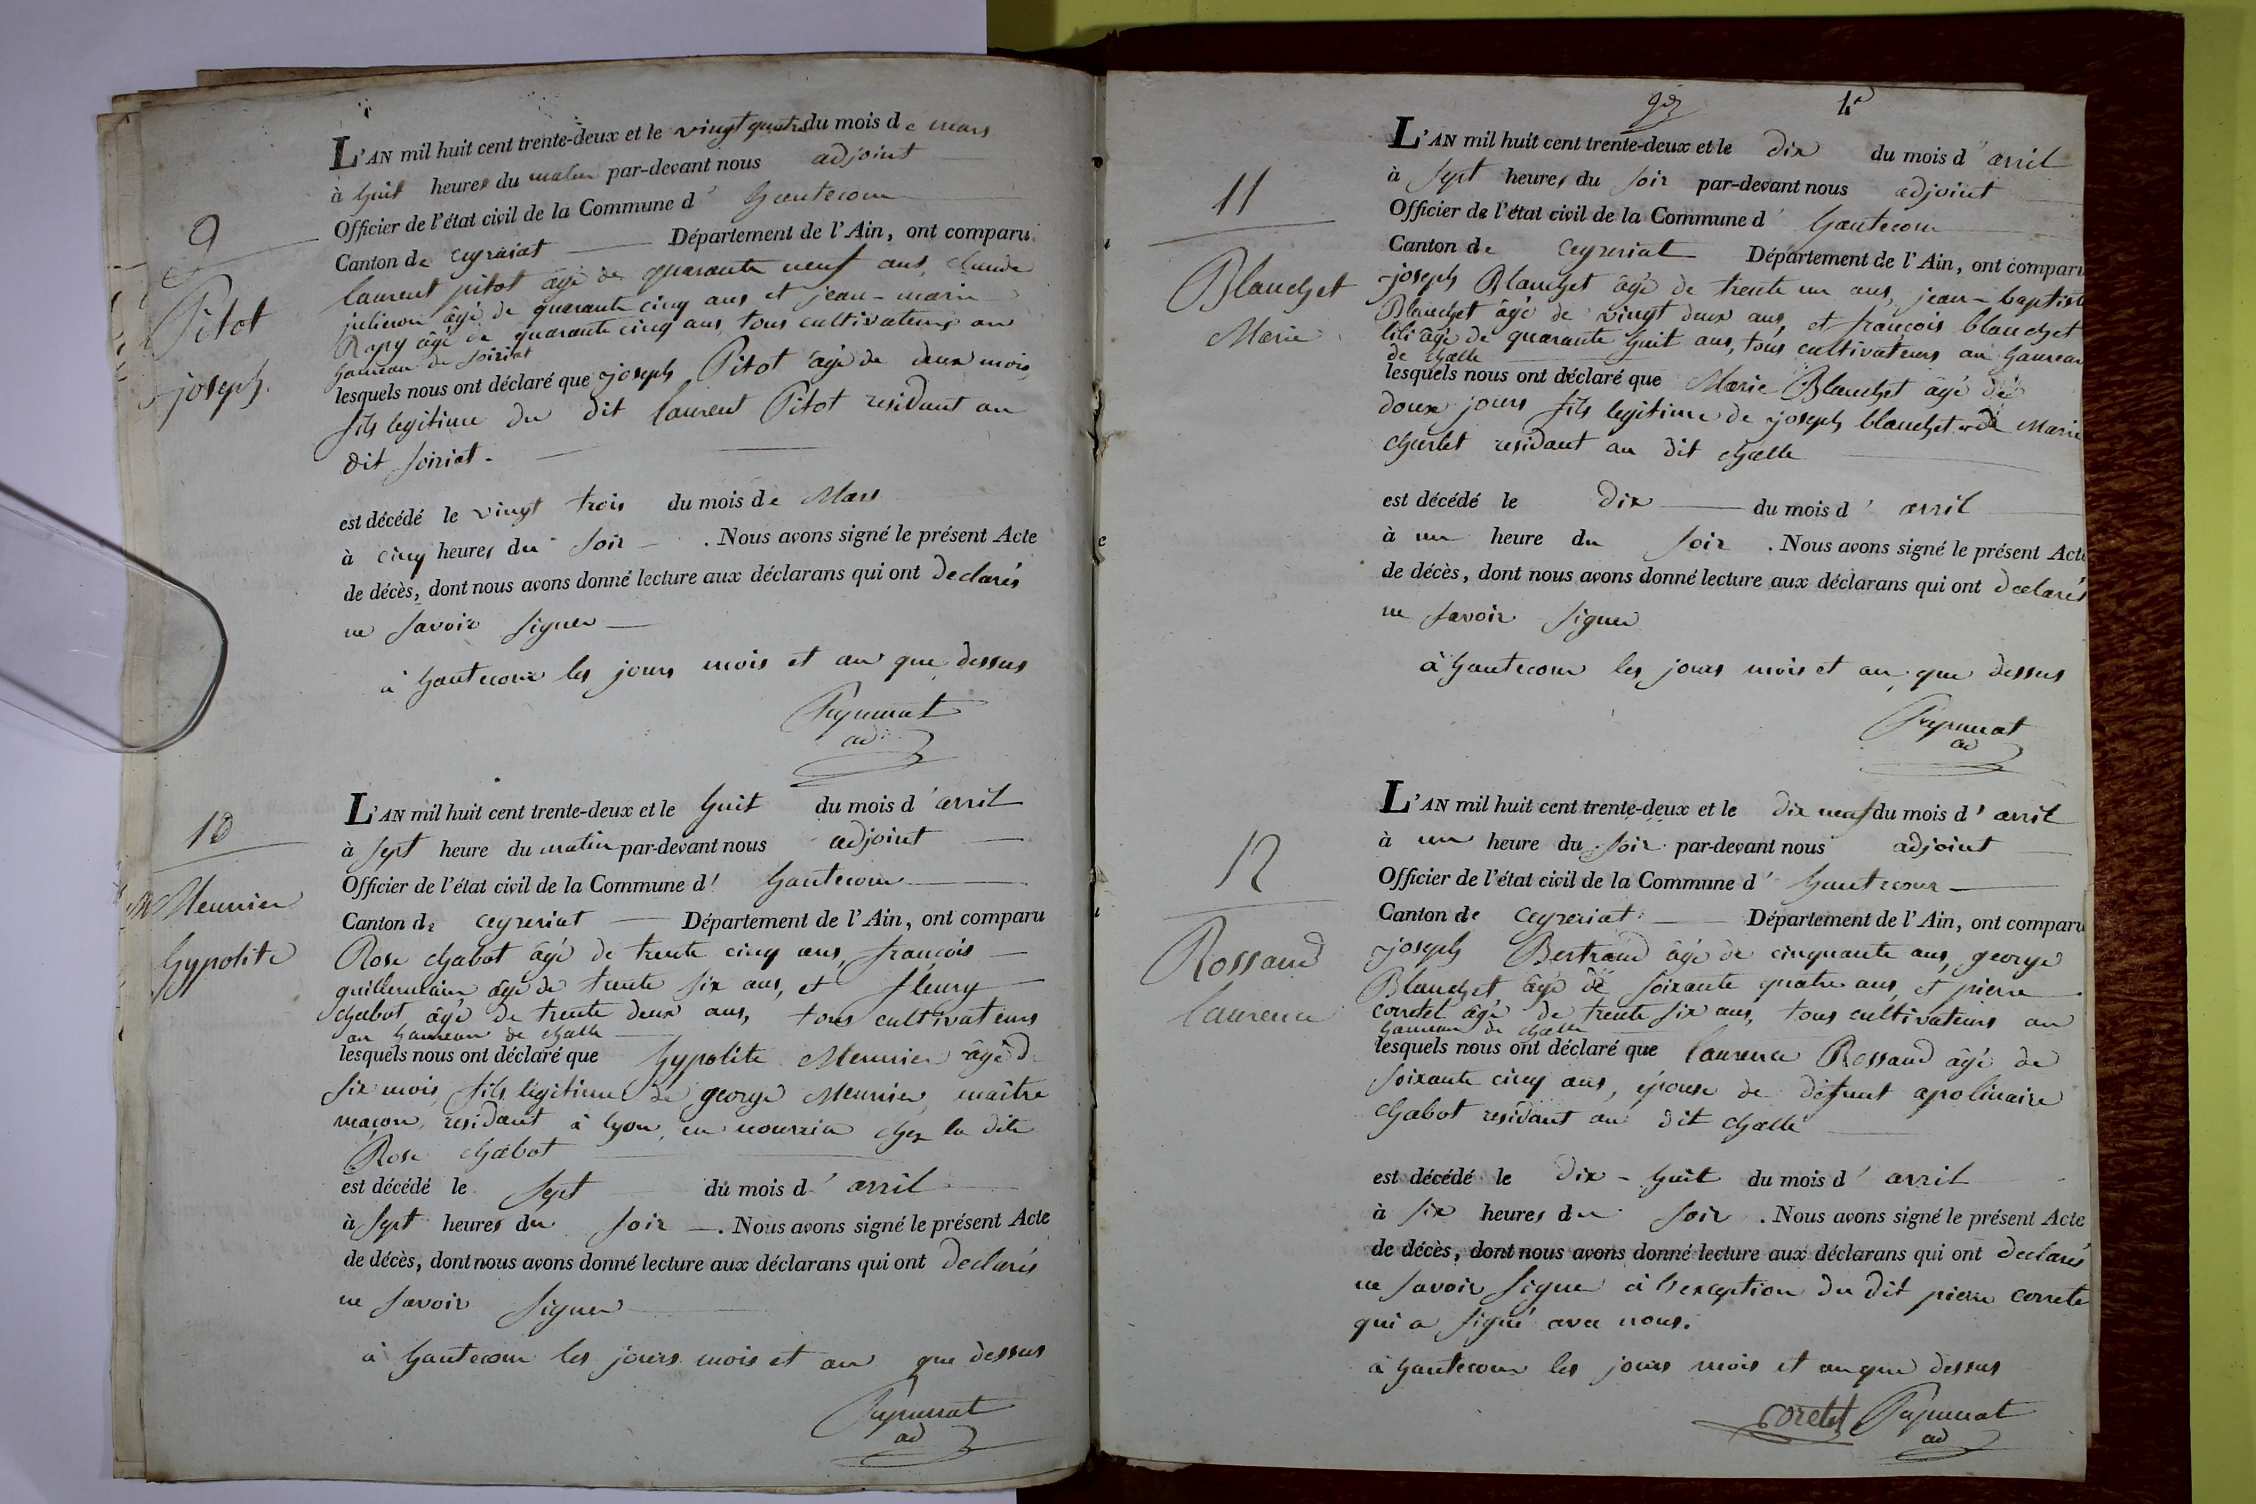 9
Pitot
joseph.
L'AN mil huit cent trente-deux et le vingt quatre du mois de mars
à huit heures du matin par-devant nous adjoint
Officier de l'état civil de la Commune d' hautecour
Canton de ceyzeriat Département de l'Ain, ont comparu
laurent pitot âgé de quarante neuf ans, claude
julieron âgé de quarante cinq ans et jean-marie
Rapy âgé de quarante cinq ans, tous cultivateurs au
hameau de soiriat
lesquels nous ont déclaré que joseph Pitot âgé de deux mois,
fils legitime du dit laurent Pitot residant au
dit soiriat.
est décédé le vingt trois du mois de Mars
à cinq heures du soir. Nous avons signé le présent Acte
de décès, dont nous avons donné lecture aux déclarans qui ont declarés
ne savoir signer
à hautecour les jours mois et an que dessus
ad
10
Meunier
hypolite
L'AN mil huit cent trente-deux et le huit du mois d'avril
à sept heure du matin par-devant nous adjoint
Officier de l'état civil de la Commune d' hautecour
Canton de ceyzeriat Département de l'Ain, ont comparu
Rose chabot âgé de trente cinq ans, françois
guillermain âgé de trente six ans, et fleury
chabot âgé de trente deux ans, tous cultivateurs
au hameau de challe
lesquels nous ont déclaré que hypolite Meunier âgé de
six mois, fils légitime de george Meunier, maître
maçon, residant à lyon, en nourrice chez la dite
Rose chabot
est décédé le sept du mois d'avril
à sept heures du soir. Nous avons signé le présent Acte
de décès, dont nous avons donné lecture aux déclarans qui ont declarés
ne savoir signer
à hautecour les jours mois et an que dessus
ad
4e
11
Blanchet
Marie
L'AN mil huit cent trente-deux et le dix du mois d'avril
à sept heures du soir par-devant nous adjoint
Officier de l'état civil de la Commune d' hautecour
Canton de ceyzeriat Département de l'Ain, ont comparu
joseph Blanchet âgé de trente un ans, jean-baptiste
Blanchet âgé de vingt deux ans, et françois blanchet
âgé de quarante huit ans, tous cultivateurs au hameau
de challe
lesquels nous ont déclaré que Marie Blanchet âgé de
douze jours fils legitime de joseph blanchet et de Marie
charlet residant au dit challe
est décédé le dix du mois d'avril
à un heure du soir. Nous avons signé le présent Acte
de décès, dont nous avons donné lecture aux déclarans qui ont declarés
ne savoir signer
à hautecour les jours mois et an que dessus
ad
12
Rossand
laurence
L'AN mil huit cent trente-deux et le dix neuf du mois d'avril
à un heure du soir par-devant nous adjoint
Officier de l'état civil de la Commune d' hautecour
Canton de ceyzeriat Département de l'Ain, ont comparu
joseph Bertrand âgé de cinquante ans, george
Blanchet âgé de soixante quatre ans, et pierre
corretel âgé de trente six ans, tous cultivateurs au
hameau de challe
lesquels nous ont déclaré que laurence Rossand âgé de
soixante cinq ans, épouse de défunt apolinaire
chabot residant au dit challe
est décédé le dix-huit du mois d'avril
à six heures du soir. Nous avons signé le présent Acte
de décès, dont nous avons donné lecture aux déclarans qui ont declarés
ne savoir signer à l'exception du dit pierre
qui a signé avec nous.
à hautecour les jours mois et an que dessus
coretel
ad